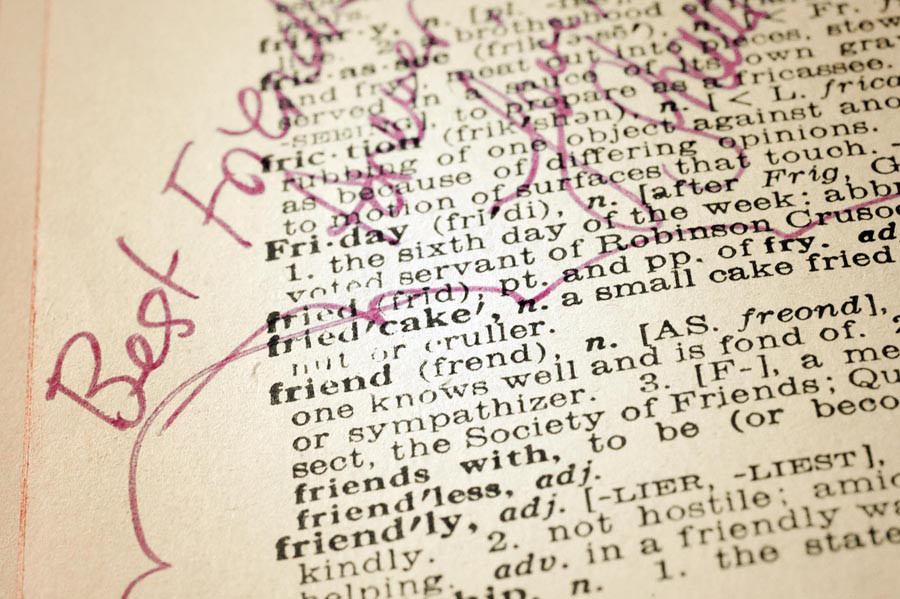 fri·ar·y, n. [pl.
2. a brotherhood o
fric·as·see (frik'ə-sē'), n. [< Fr. f
meat cut into pieces, stew
and fry served in a sauce of its own gra
to prepare as a fricassee.
fric·tion (frik'shən), n. [< L. frica
rubbing of one object against ano
as because of differing opinions.
to motion of surfaces that touch. -
Fri·day (frī'di), n. [after Frig, G
1. the sixth day of the week: abbr
voted servant of Robinson Crusoe
fried (frīd), pt. and pp. of fry. ad
fried'cake', n. a small cake fried
nut or cruller.
friend (frend), n. [AS. freond],
one knows well and is fond of. 2
or sympathizer. 3. [F-], a me
sect, the Society of Friends; Qu
friends with, to be (or beco
friend'less, adj.
friend'ly, adj. [-LIER, -LIEST],
kindly. 2. not hostile; amic
helping. adv. in a friendly wa
n. 1. the state
Best Friends